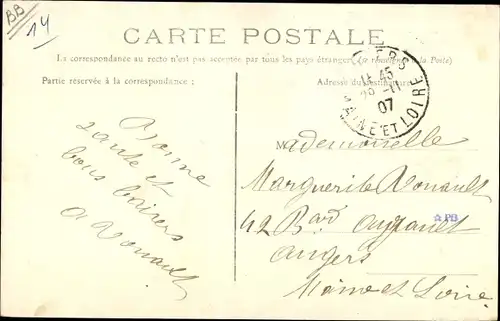 BB
14
CARTE POSTALE
La correspondance au recto n'est pas acceptée par tous les pays étrangers (se renseigner à la Poste)
Partie réservée à la correspondance :
Adresse du destinataire
ERS
11 45
11
07
MAINE ET LOIRE
Bonne
santé et
bons baisers
A Rouault
Mademoiselle
Marguerite Rouault
42 Bard Ayrault
Angers
Maine et Loire
☆PB